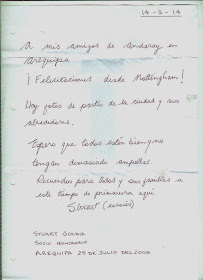 14-3-14
A mis amigos de Andaray en
Arequipa
¡Felicitaciones desde Nottingham!
Hay fotos de partes de la ciudad y sus
alrededores.
Espero que todos estén bien y no
tengan demasiado ampollas.
Recuerdos para todos y sus familias a
este tiempo de primavera aquí.
Stuart
STUART
SOCIO HONORARIO
AREQUIPA 25 DE JULIO DEL 2006